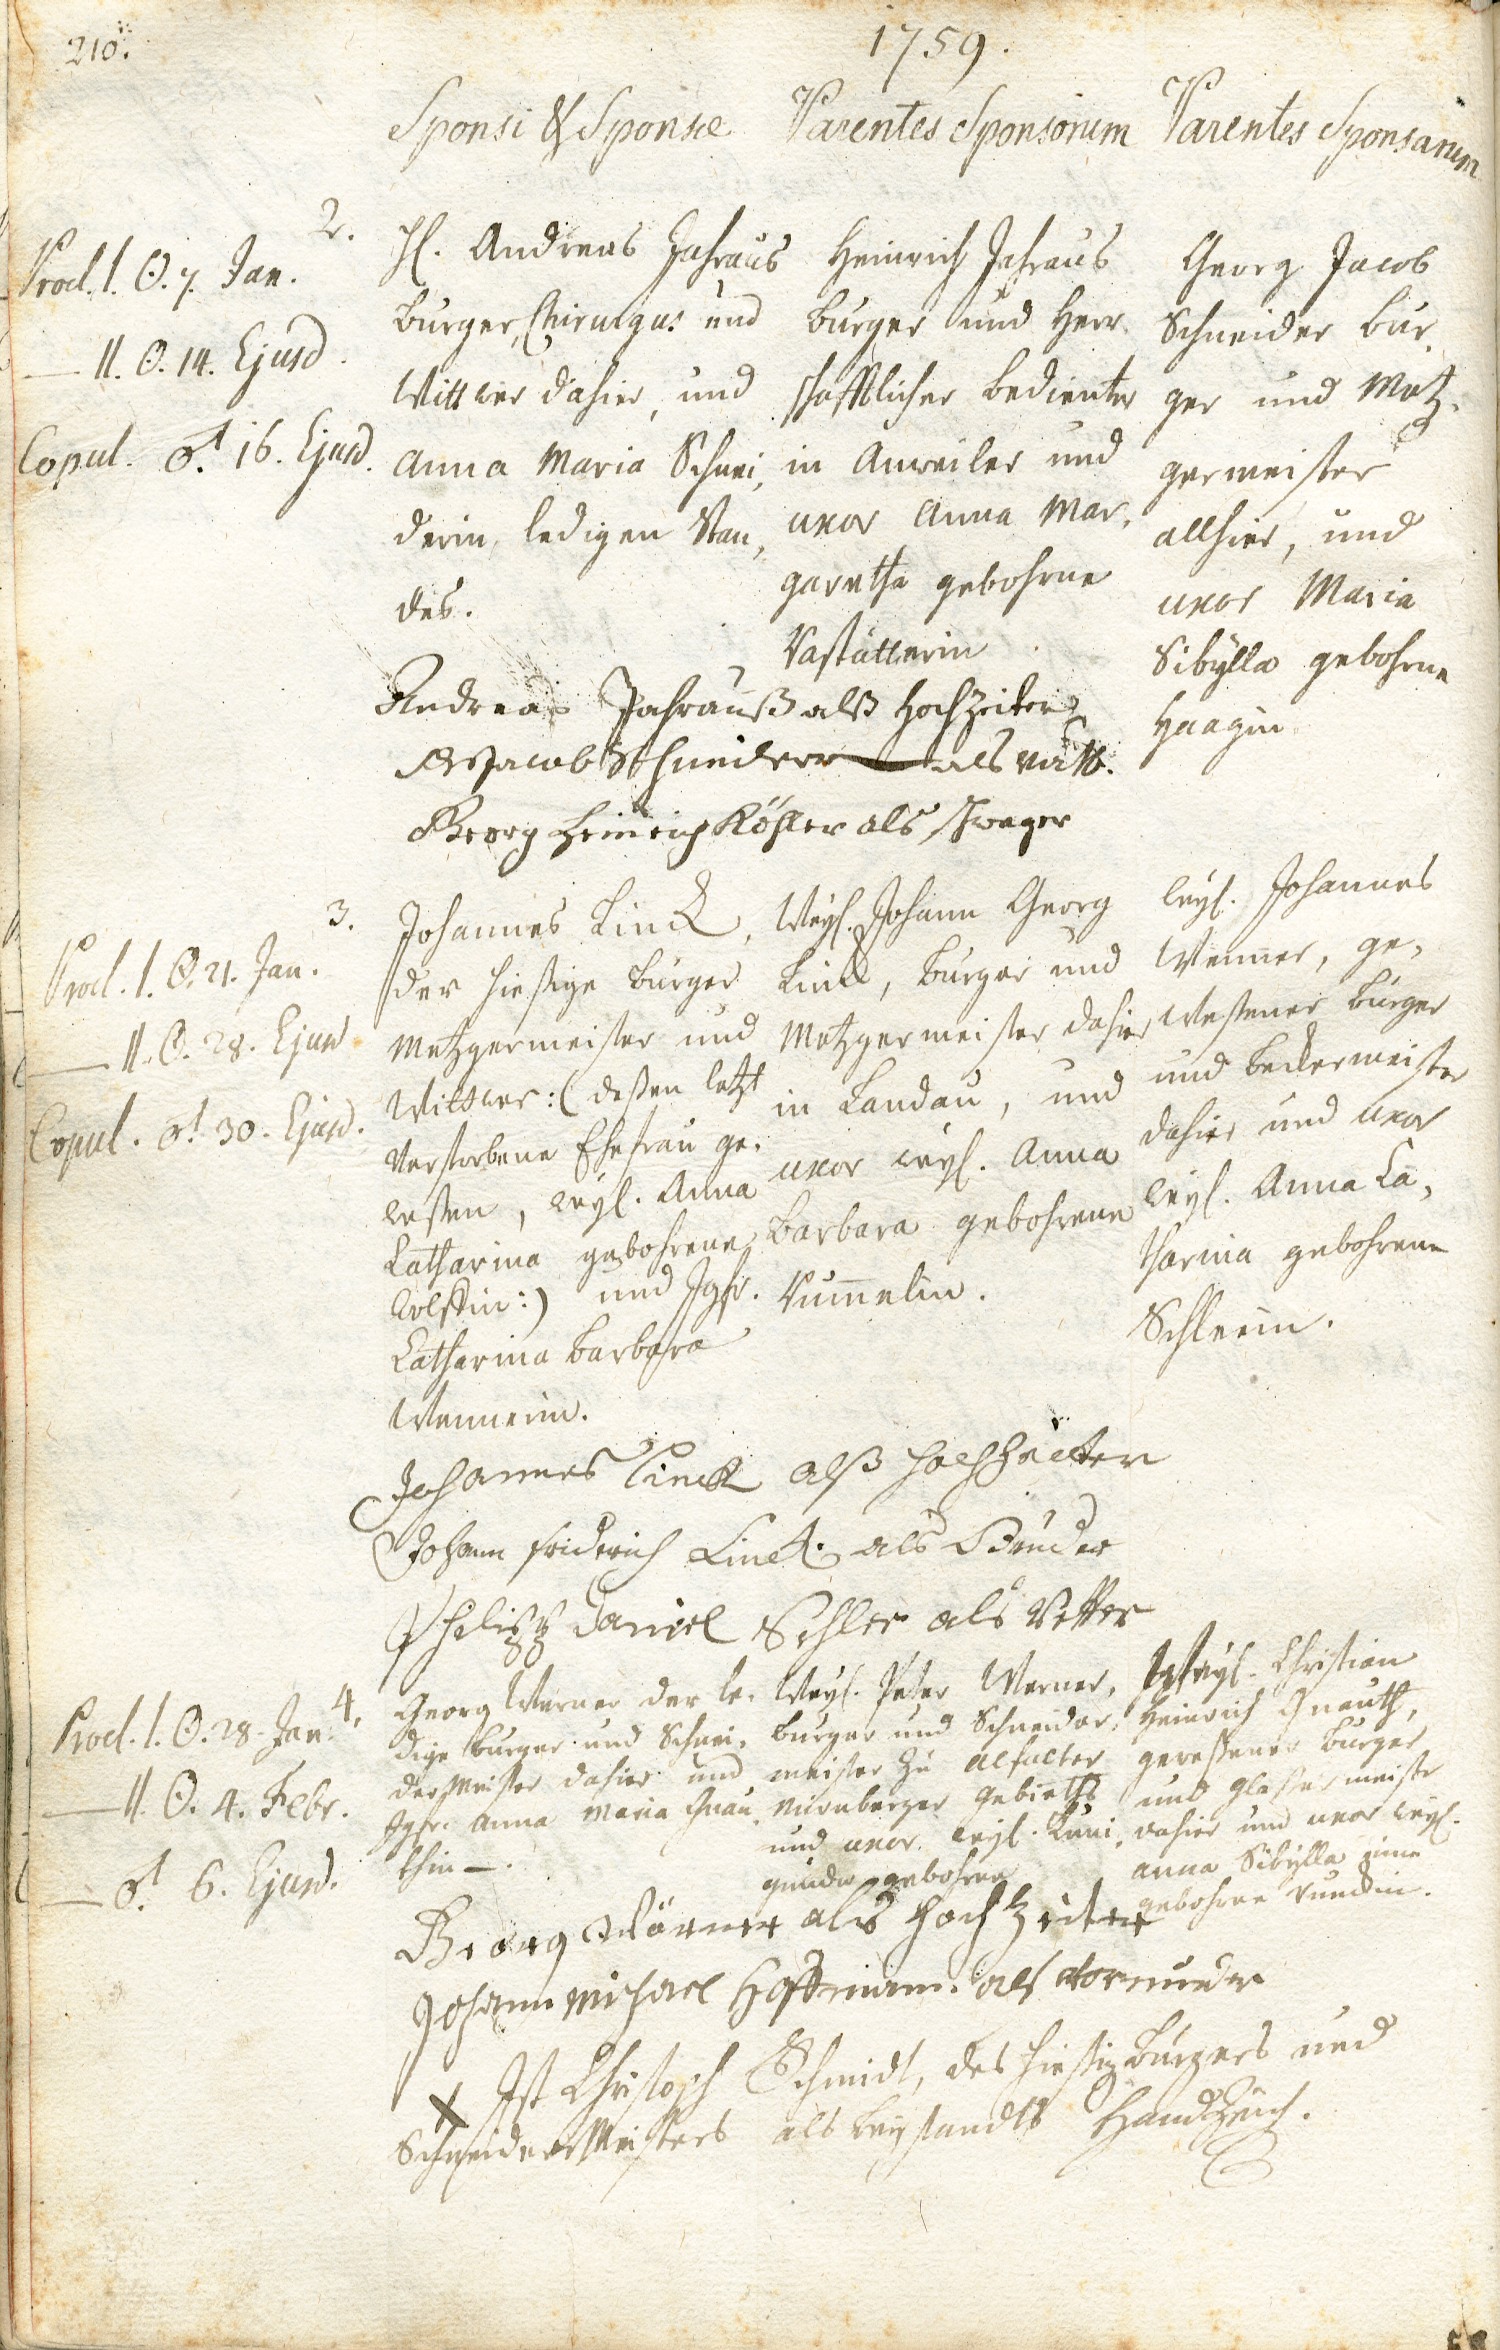 210.
1759.
Sponsi & Sponsæ
Parentes Sponsorum
Parentes Sponsarum
2.
Procl. I. ☉. 7. Jan.
— II. ☉. 14. Ejusd.
Copul. ♂. 16. Ejusd.
H. Andreas Jahraus
burger, Chirurgus und
Wittwer dahier, und
Anna Maria Schnei,
derin, ledigen Stan,
des.
Heinrich Jahraus
burger und Herr,
schafftlicher bedienter
in Anweiler und
uxor Anna Mar,
garetha gebohrne
Georg Jacob
Schneider bur,
ger und Metz,
germeister
allhier, und
uxor Maria
Sibÿlla gebohrne
Haagin
Andreas Jahrauß alß Hochzeiter
Jacob Schneider als vatter.
Georg Heinrich Köhler als schwager
3.
Procl. I. ☉. 21. Jan.
— II. ☉. 28. Ejusd
Copul. ♂. 30. Ejusd.
Johannes Linck,
der hießige burger
Metzgermeister und
Wittwer :( deßen letzt
verstorbene Ehefrau ge,
weßen, weyl. Anna
Catharina gebohrene
:) und Jgfr.
Catharina Barbara
Wennerin.
Weyl. Johann Georg
Linck, burger und
Metzgermeister dahier
in Landau, und
uxor weyl. Anna
Barbara gebohrene
Rum̄elin.
weyl. Johannes
Wenner, ge,
weßener burger
und beckermeister
dahier und uxor
weyl. Anna Ca,
tharina gebohrene
Schlerin.
Johannes Linck alß hochzeitter
Johann friderich Linck. als Bruder
Philipp Daniel Schler als Vetter
4.
Procl. I. ☉. 28. Jan.
— II. ☉. 4. Febr.
— ♂. 6. Ejusd.
Georg Werner der le,
dige burger und Schnei,
dermeister dahier und
Jgfr. Anna Maria Gnau,
thin —.
Weyl. Peter Werner,
burger und Schneider,
meister zu Alfalter
Nürnberger Gebieths
und uxor weyl. Kuni,
gunda gebohrne
Weyl. Christian
Heinrich Gnauth,
geweßener burger
und Glaßermeister
dahier und uxor weyl.
Anna Sibÿlla eine
gebohrne
Georg Wörner als Hochzeiter
Johann Michael Hoffmann. als vormunder
X Ist Christoph Schmidt, des hießig burgers und
Schneidermeisters als beystandts Handzeich.